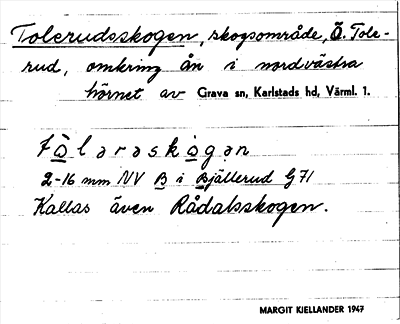 Tolerudsskogen, skogsområde, Ö. Tole-
rud, omkring ån i nordvästra
hörnet av Grava sn, Karlstads hd, Värml. 1.
tòlərəskògən
2-16 mm NV B i Bjällerud G 71
Kallas även Rådalsskogen.
MARGIT KJELLANDER 1947